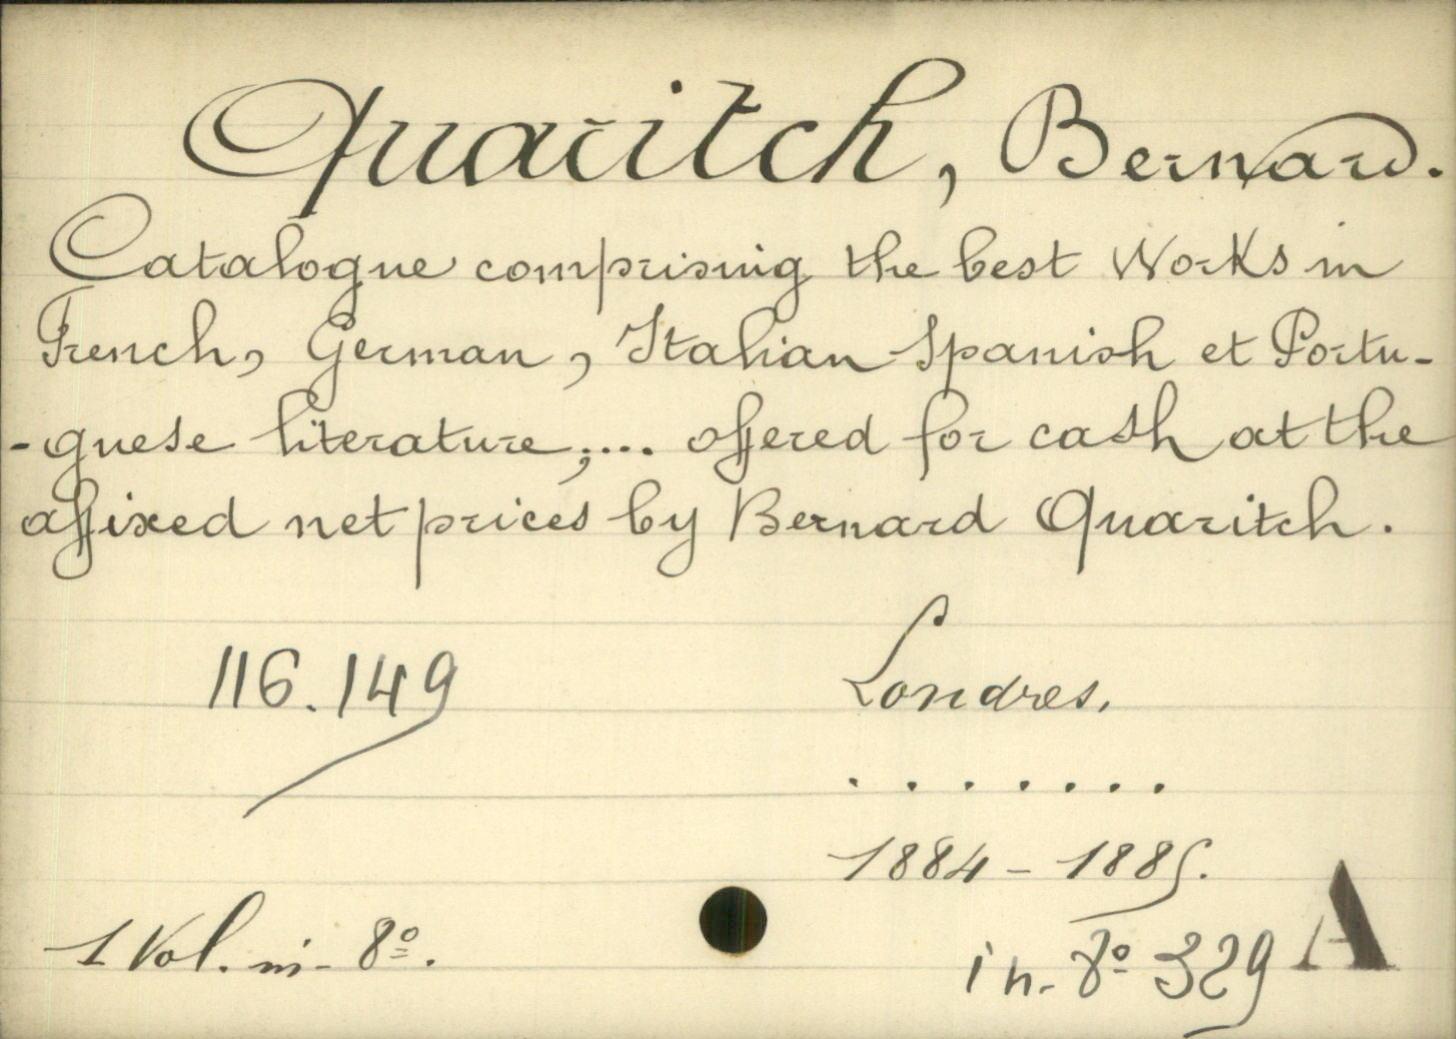 Quaritch, Bernard.
Catalogue comprising the best Works in
French, German, Italian Spanish et Portu-
-guese literature;... offered for cash at the
affixed net prices by Bernard Quaritch.
116.149
Londres.
.......
1884-1885.
1 Vol. in-8º.
in-8º 329 A